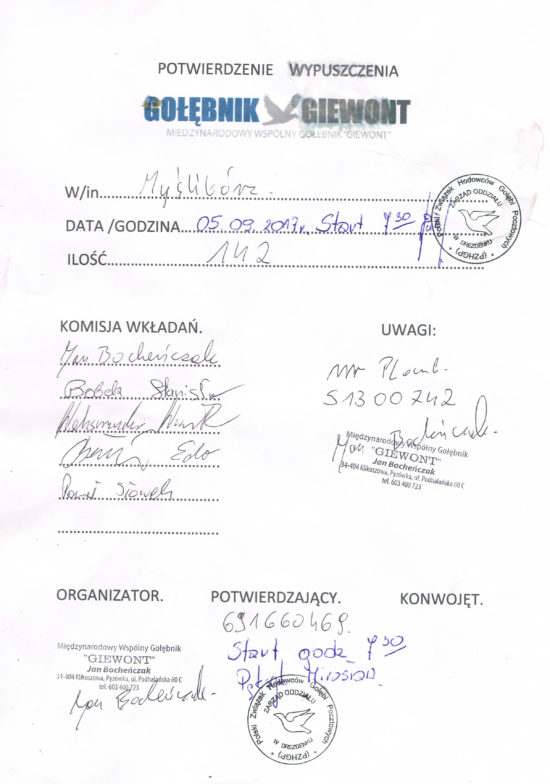 POTWIERDZENIE WYPUSZCZENIA
GOŁĘBNIK GIEWONT
MIĘDZYNARODOWY WSPÓLNY GOŁĘBNIK "GIEWONT"
W/in Myślibórz.
DATA /GODZINA 05.09.2017r. Start 7 30
ILOŚĆ 142
Polski Związek Hodowców Gołębi Pocztowych
ZARZĄD ODDZIAŁU
W DREZDENKU
(PZHGP)
KOMISJA WKŁADAŃ.
Jan Bocheńczak
Bobek Stanisław
Aleksander
Edo
Paweł
UWAGI:
nr Plomb.
S1300742
Jan Bocheńczak
Międzynarodowy Wspólny Gołębnik
"GIEWONT"
Jan Bocheńczak
34-404 Klikuszowa, Pyzówka, ul. Podhalańska 60 C
tel. 603 400 723
ORGANIZATOR.
Międzynarodowy Wspólny Gołębnik
"GIEWONT"
Jan Bocheńczak
34-404 Klikuszowa, Pyzówka, ul. Podhalańska 60 C
tel. 603 400 723
Jan Bocheńczak
POTWIERDZAJĄCY.
691660469.
Start godz 7 30
Mirosław
Polski Związek Hodowców Gołębi Pocztowych
ZARZĄD ODDZIAŁU
W DREZDENKU
(PZHGP)
KONWOJĘT.